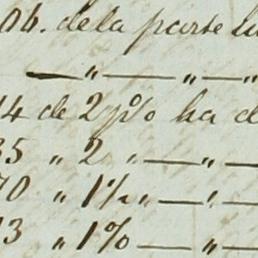 06. dela parte
— „ — „ — „
14 de 2 p% ha d
35 „ 2 „ — „ —
70 „ 1½ „ — „ —
13 „ 1% — „ —